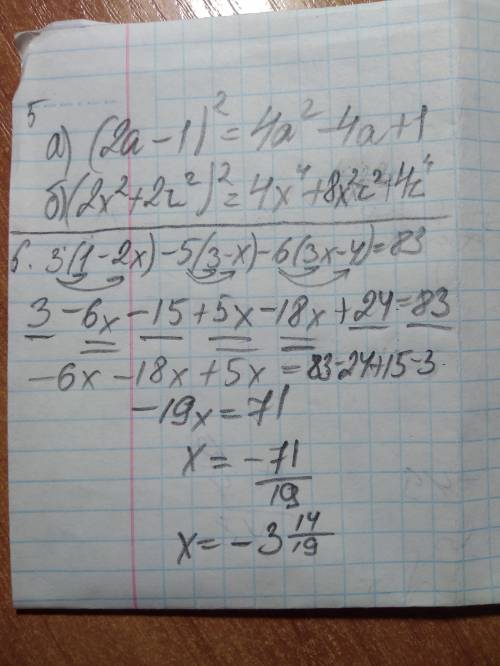 5
а) (2a-1)² = 4a² - 4a + 1
б) (2x² + 2z²)² = 4x⁴ + 8x²z² + 4z⁴
6. 3(1-2x) - 5(3-x) - 6(3x-4) = 83
3 - 6x - 15 + 5x - 18x + 24 = 83
-6x - 18x + 5x = 83-24+15-3
-19x = 71
x = -71/19
x = -3 14/19